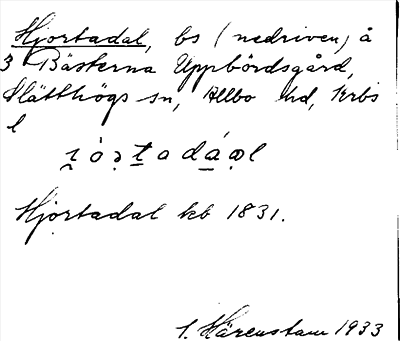 Hjortadal, bs (nedriven) å
3 Bästerna Uppbördsgård,
Slätthögs sn, Allbo hd, Krbs
l
Hjortadal kb 1831.
S. Härenstam 1933